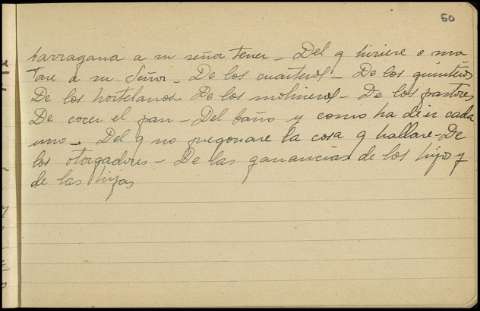 50
barragana a su seña tener_ Del q hiriere o ma
tare a su Señor_ De los cuarteros_ De los quinteros
De los hortelanos De los molineros_ De los pastores
De cocer el pan_ Del baño y como ha de ir cada
uno_ Del q no pregonare la cosa q hallare_De
los otorgadores_ De las ganancias de los hijos y
de las hijas